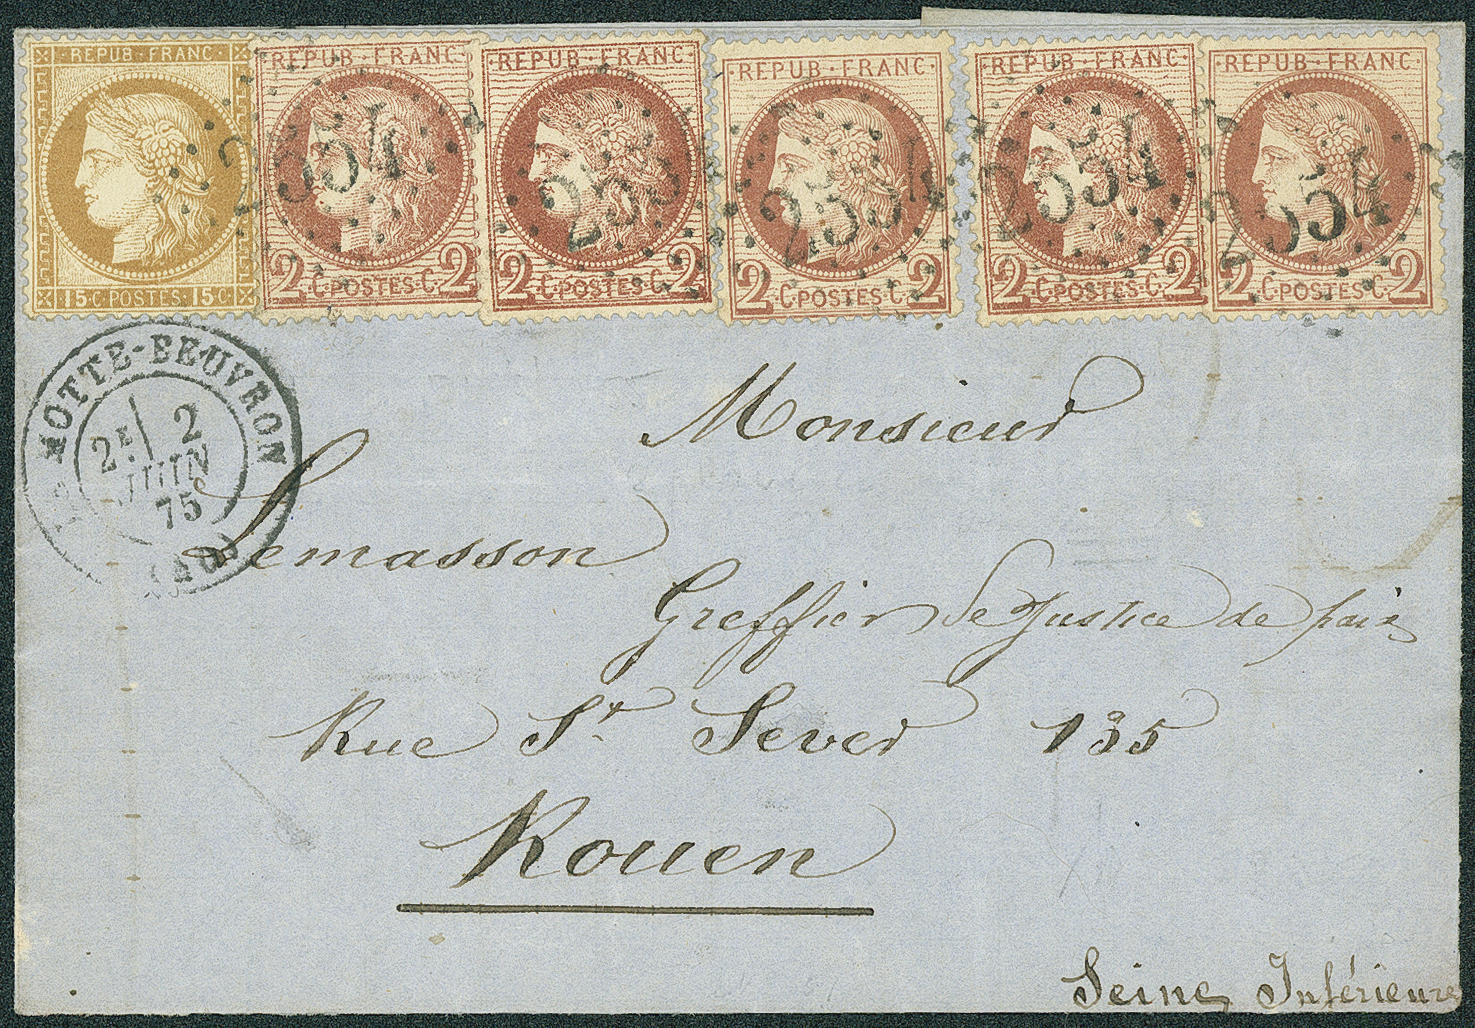 REPUB·FRANC
15·C·POSTES·15·C
REPUB·FRANC·
2 C·POSTES·C· 2
2554
REPUB·FRANC·
2 C·POSTES·C· 2
255
REPUB·FRANC·
2 C·POSTES·C· 2
2554
REPUB·FRANC·
2 C·POSTES·C· 2
2554
REPUB·FRANC·
2 C·POSTES·C· 2
2554
MOTTE-BEUVRON
2E/ 2
JUIN
75
Monsieur
Lemasson
Greffier de Justice de paix
Rue St Sever 135
Rouen
Seine Inférieure